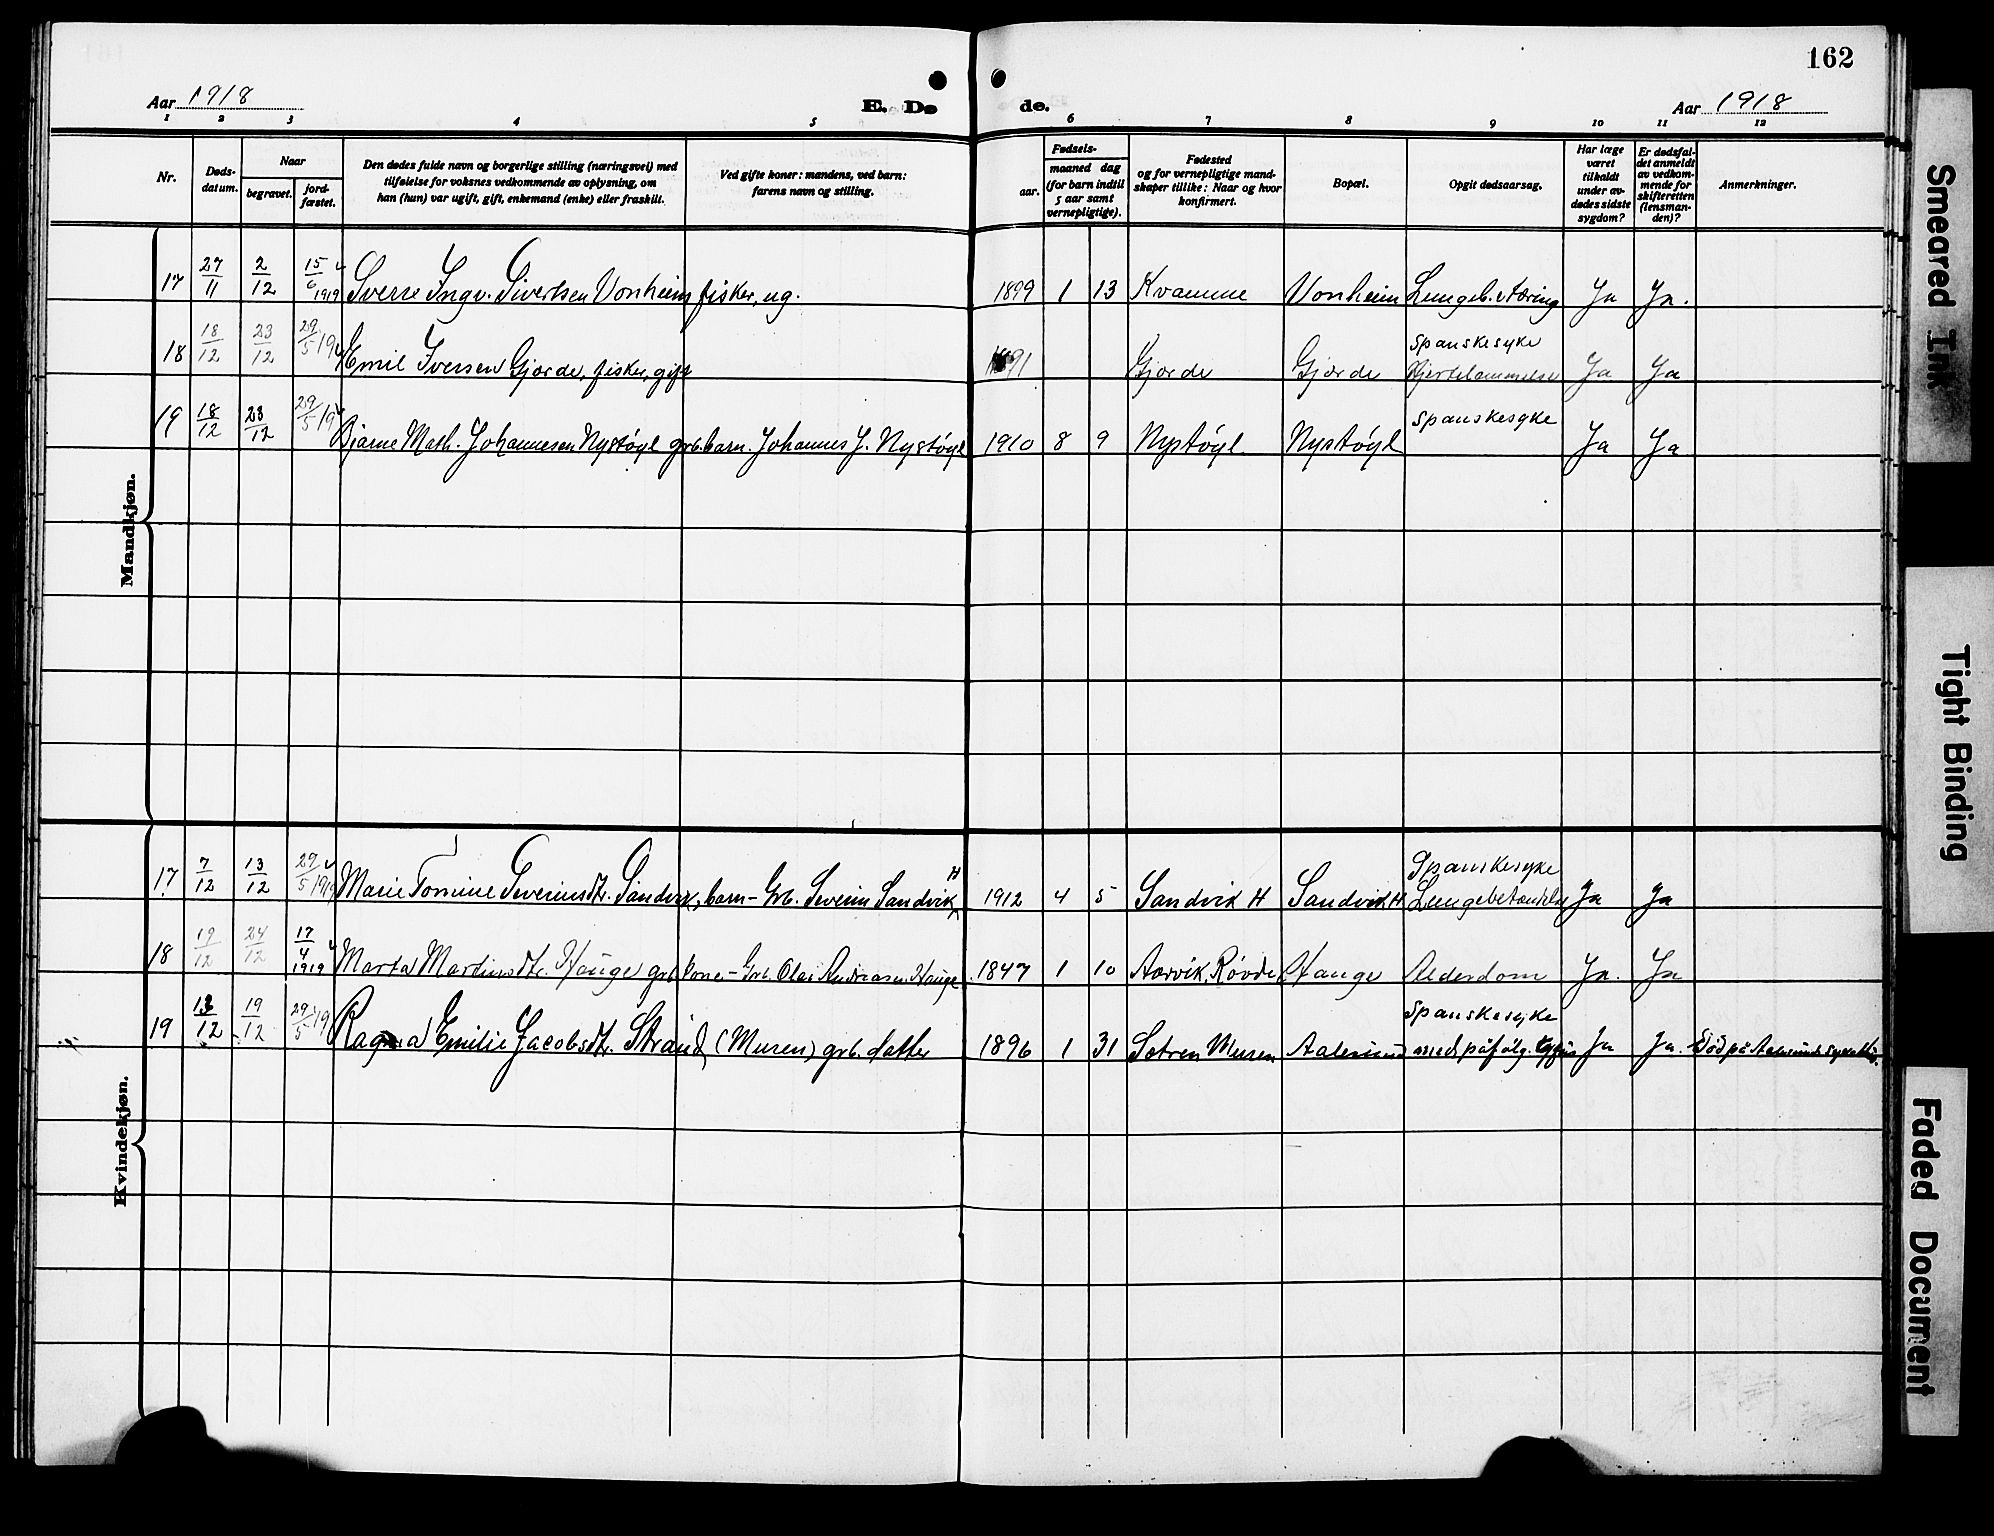 162
Aar 1918
E. De
de.
Aar 1918
1 2 3 4 5 6 7 8 9 10 11 12
Nr.
Døds-
datum.
Naar
begravet.
jord-
fæstet.
Den dødes fulde navn og borgerlige stilling (næringsvei) med
tilføielse for voksnes vedkommende av oplysning, om
han (hun) var ugift, gift, enkemand (enke) eller fraskilt.
Ved gifte koner: mandens, ved barn:
farens navn og stilling.
Fødsels-
aar.
maaned dag
(for barn indtil
5 aar samt
vernepligtige).
Fødested
og for vernepligtige mand-
skaper tillike: Naar og hvor
konfirmert.
Bopæl.
Opgit dødsaarsag.
Har læge
været
tilkaldt
under av-
dødes sidste
sygdom?
Er dødsfal-
det anmeldt
av vedkom-
mende for
skifteretten
(lensman-
den)?
Anmerkninger.
Mandkjøn.
17 27/11 2/12 15/6 1919 Sverre Ingv. Sivertsen Vonheim fisker, ug. 1899 1 13 Kvamme Vonheim Ja Ja.
18 18/12 23/12 29/5 19 Emil Iversen Gjørde, fisker, gift 1891 Gjørde Gjørde Spanskesyke
Hjertelammelse Ja Ja
19 18/12 23/12 29/5 19 Bjarne Math. Johannesen Nystøyl grb. barn. Johannes J. Nystøyl 1910 8 9 Nystøyl Nystøyl Spanskesyke Ja Ja
Kvindekjøn.
17 7/12 13/12 29/5 1919 Marie Tomine Severinsdtr. Sandvik, barn - Grb. Severin Sandvik H 1912 4 5 Sandvik H Sandvik H Spanskesyke
Lungebetændelse Ja Ja
18 19/12 24/12 17/4 1919 Marta Martinsdtr. Hauge grb. kone - Grb. Olai Andreasen Hauge 1847 1 10 Aarvik, Røvde Hauge Alderdom Ja. Ja
19 13/12 19/12 29/5 19 Ragna Emilie Jacobsdtr. Strand (Muren) grb. datter 1896 1 31 Sætren Muren Aalesund Spanskesyke
med påfølg. tyfus Ja Ja. Død på Aalesunds sykehus.
Smeared Ink
Tight Binding
Faded Document